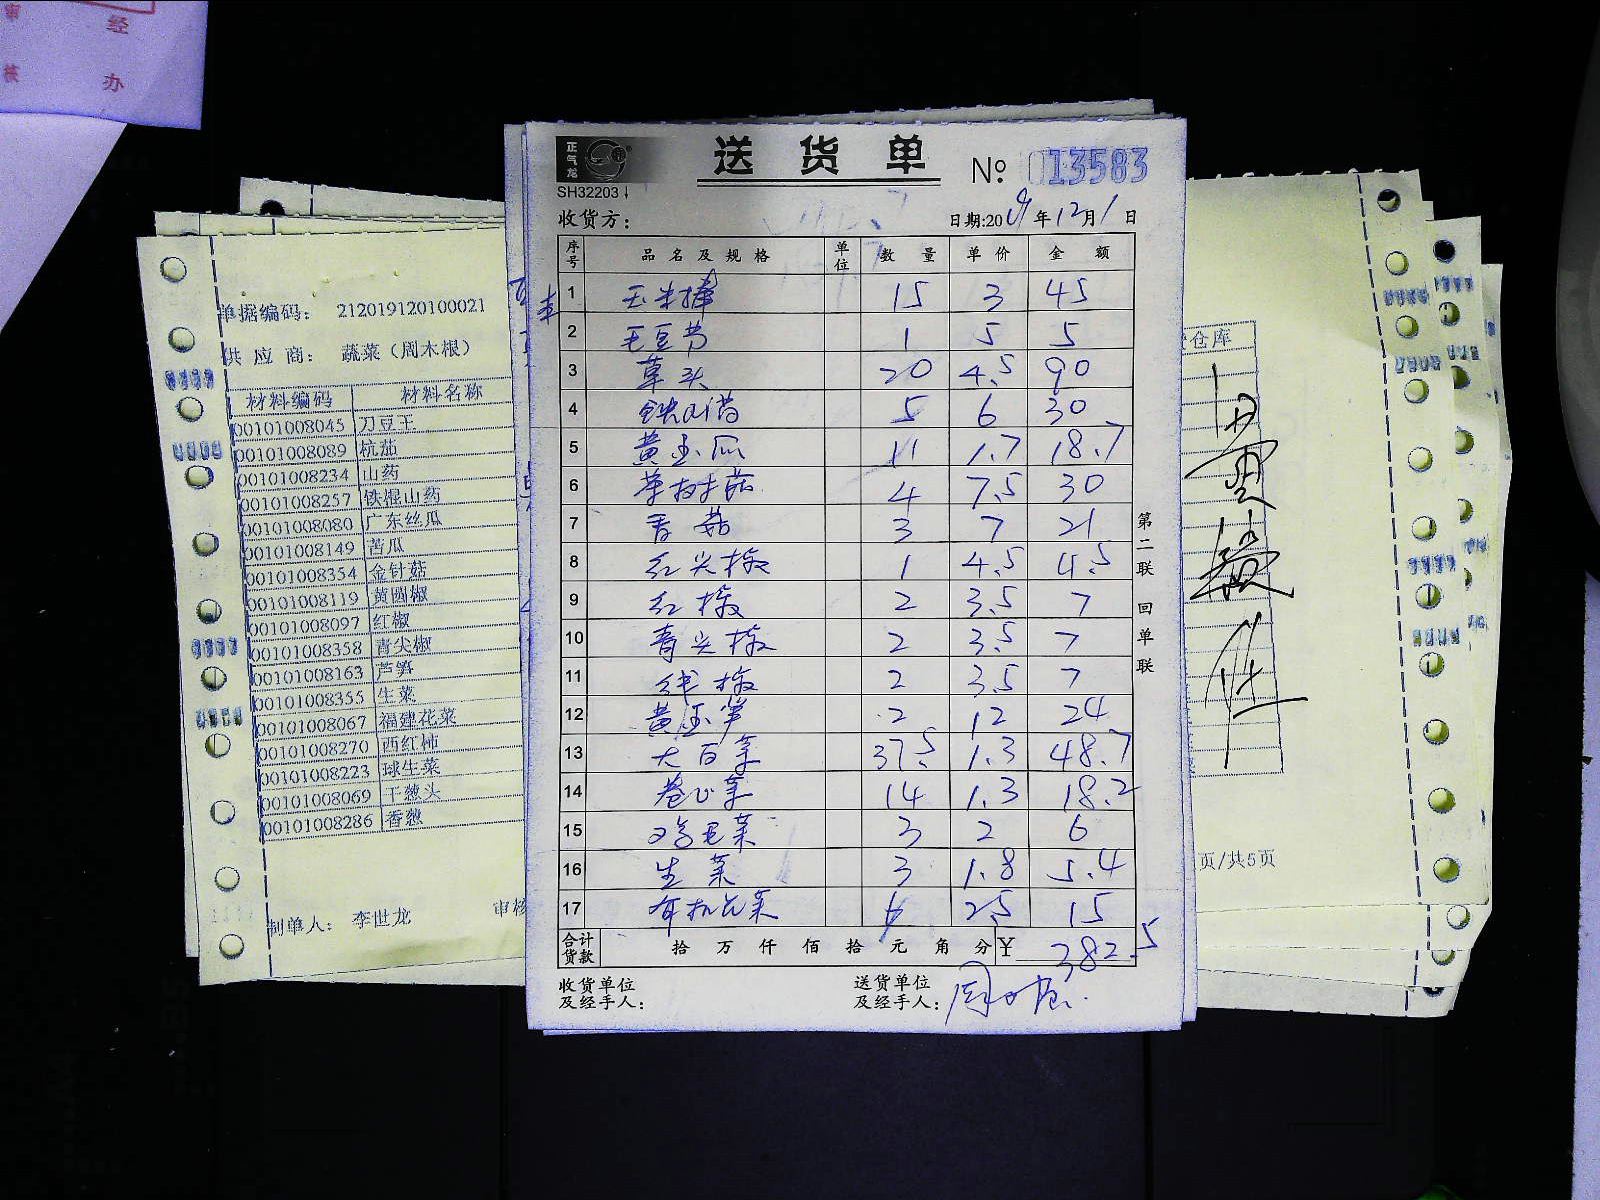 审 经
核 办
正气龙
送货单
№ 013583
SH32203↓
收货方:
日期:2019年12月1日
序号 品名及规格 单位 数量 单价 金额
1 玉米棒 15 3 45
2 毛豆节 1 5 5
3 草头 20 4.5 90
4 铁山药 5 6 30
5 黄玉瓜 11 1.7 18.7
6 茶树菇 4 7.5 30
7 香菇 3 7 21
8 红尖椒 1 4.5 4.5
9 红椒 2 3.5 7
10 青尖椒 2 3.5 7
11 线椒 2 3.5 7
12 黄豆芽 2 12 24
13 大白菜 37.5 1.3 48.7
14 卷心菜 14 1.3 18.2
15 鸡毛菜 3 2 6
16 生菜 3 1.8 5.4
17 有机花菜 6 2.5 15
合计货款 拾万仟佰拾元角分 ¥ 382.5
收货单位及经手人:
送货单位及经手人: 周木根
第二联 回单联
单据编码: 212019120100021
供应商: 蔬菜(周木根)
材料编码 材料名称
00101008045 刀豆王
00101008089 杭茄
00101008234 山药
00101008257 铁棍山药
00101008080 广东丝瓜
00101008149 苦瓜
00101008354 金针菇
00101008119 黄圆椒
00101008097 红椒
00101008358 青尖椒
00101008163 芦笋
00101008355 生菜
00101008067 福建花菜
00101008270 西红柿
00101008223 球生菜
00101008069 干葱头
00101008286 香葱
制单人: 李世龙
审核
仓库
页/共5页